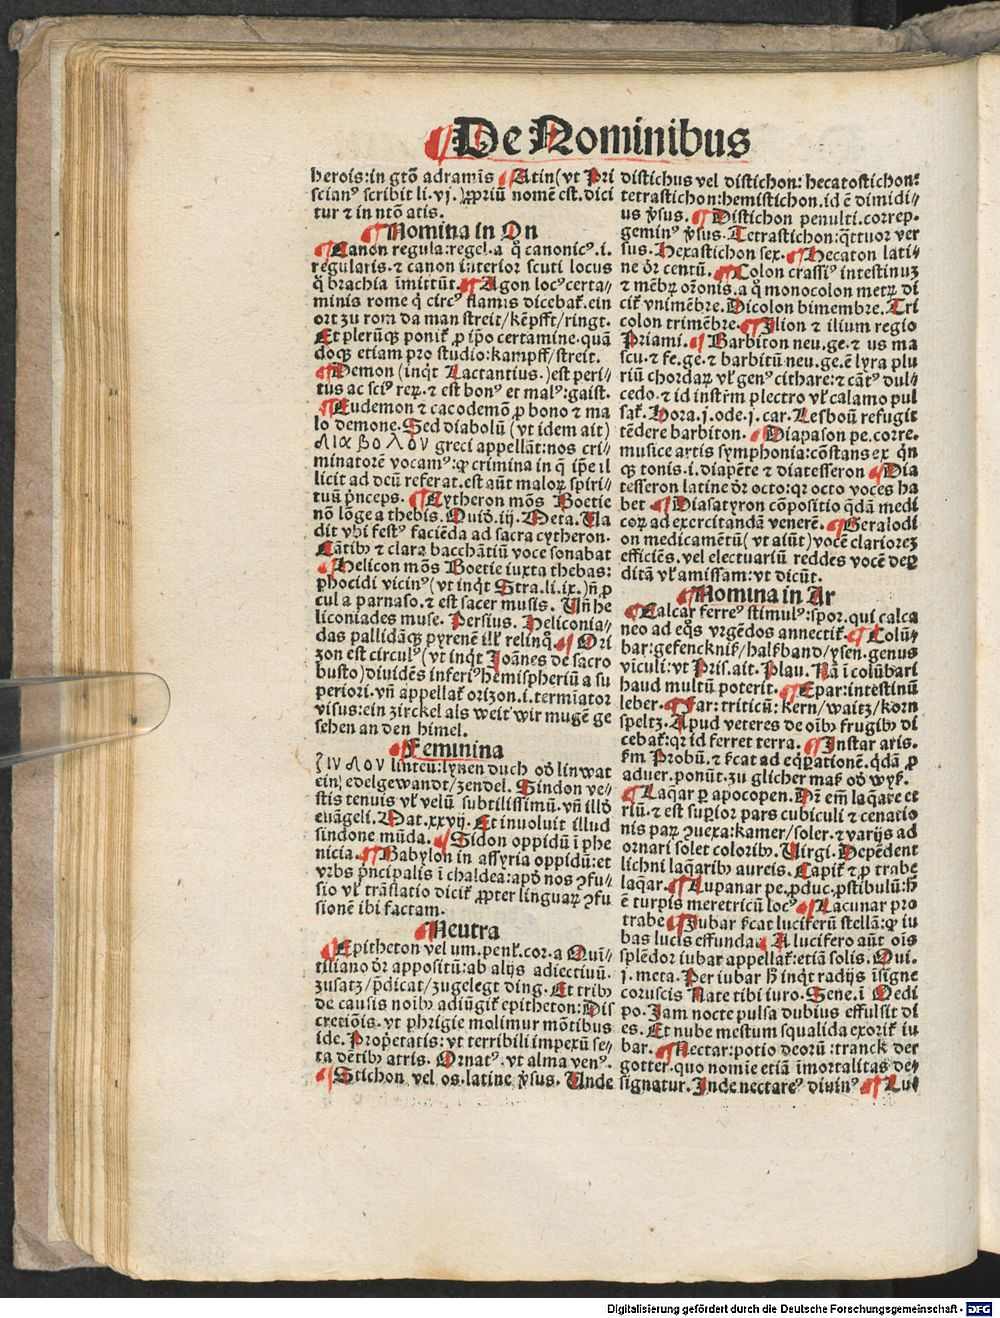 De Nominibus
herois:in gtō adramīs ¶ Atin(vt Pri
scianꝰ scribit li.vj.)ꝓpriū nomē est.dici
tur ⁊ in ntō atis.
¶ Nomina in On
¶ Canon regula.regel.a q̄ canonicꝰ.i.
regularis.⁊ canon interior scuti locus
q̄ brachia īmittūt. ¶ Agon locꝰ certa⸗
minis rome q̄ circꝰ flamīs dicebat̄.ein
ort zu rom da man streit/kēpfft/ringt.
Et plerūqꝫ ponit̄ ꝓ ip̄o certamine.quā
doqꝫ etiam pro studio:kampff/streit.
¶ Demon (inq̄t Lactantius.)est peri⸗
tus ac sciꝰ reꝝ.⁊ est bonꝰ et malꝰ:gaist.
¶ Eudemon ⁊ cacodemō ꝓ bono ⁊ ma
lo demone.Sed diabolū (vt idem ait)
διαβολου greci appellāt:nos cri⸗
minatorē vocamꝰ:qꝫ crimina in q̄ ip̄e il
licit ad deū referat.est aūt maloꝝ spiri⸗
tuū p̄nceps. ¶ Cytheron mōs Boetie
nō lōge a thebis.Ouid.iij.Meta.Ua
dit vbi festꝰ faciēda ad sacra cytheron.
Cātibꝰ ⁊ clara bacchātiū voce sonabat
¶ Helicon mōs Boetie iuxta thebas:
phocidi vicinꝰ(vt inq̄t Stra.li.ix.)n̄ ꝓ
cul a parnaso.⁊ est sacer musis. Un̄ he
liconiades muse. Persius. Heliconia⸗
das pallidāqꝫ pyrenē ill̄ relinq̄. ¶ Ori
zon est circulꝰ (vt inq̄t Joānes de sacro
busto)diuidēs inferiꝰ hemispheriū a su
periori.vn̄ appellat̄ orizon.i.termīator
visus:ein zirckel als weit wir mugē ge
sehen an den himel.
¶ Feminina
Σινδου linteū:lynen duch od̄ linwat
ein edelgewandt/zendel. Sindon ve⸗
stis tenuis vl̄ velū subtilissimū.vn̄ illd̄
euāgeli.Mat.xxvij. Et inuoluit illud
sindone mūda. ¶ Sidon oppidū ī phe
nicia. ¶ Babylon in assyria oppidū:et
vrbs p̄ncipalis ī chaldea:apd̄ nos ꝯfu⸗
sio vl̄ trāslatio dicit̄ ꝓpter linguaꝝ ꝯfu
sionē ibi factam.
¶ Neutra
¶ Epitheton vel um.penl̄.cor.a Quī⸗
tiliano dr̄ appositū:ab alijs adiectiuū.
zusatz/p̄dicat/zugelegt ding. Et tribꝰ
de causis noībꝰ adiūgit̄ epitheton:Dis
cretiōis.vt phrigie molimur mōtibus
ide.Prop̄etatis:vt terribili imperū se⸗
ta dētibꝰ atris. Ornatꝰ.vt alma venꝰ.
¶ Stichon vel os.latine v̄sus. Unde
distichus vel distichon:hecatostichon:
tetrastichon:hemistichon.id ē dimidi⸗
us v̄sus. ¶ Distichon penulti.correp⸗
geminꝰ v̄sus.Tetrastichon:q̄ttuor ver
sus.Hexastichon sex. ¶ Hecaton lati⸗
ne dr̄ centū. ¶ Colon crassiꝰ intestinuꝫ
⁊ mēbꝝ orōnis.a q̄ monocolon metꝝ di
cit̄ vnimēbre.Dicolon bimembre.Tri
colon trimēbre. ¶ Ilion ⁊ ilium regio
Priami. ¶ Barbiton neu.ge.⁊ us ma
scu.⁊ fe.ge.⁊ barbitū neu.ge.ē lyra plu
riū chordaꝝ vl̄ genꝰ cithare:⁊ cātꝰ dul⸗
cedo.⁊ id instr̄m plectro vl̄ calamo pul
sat̄.Hora.j.ode.j.car.Lesboū refugit
tēdere barbiton. ¶ Diapason pe.corre.
musice artis symphonia:cōstans ex q̄n
qꝫ tonis.i.diapēte ⁊ diatesseron ¶ Dia
tesseron latine dr̄ octo:qr octo voces ha
bet ¶ Diasatyron cōpositio q̄dā medi
coꝝ ad exercitandā venerē. ¶ Geralodi
on medicamētū(vt aiūt)vocē clarioreꝫ
efficiēs.vel electuariū reddes vocē deꝑ
ditā vl̄ amissam:vt dicūt.
¶ Nomina in Ar
¶ Calcar ferreꝰ stimulꝰ:spor.qui calca
neo ad eq̄s vrgēdos annectit̄. ¶ Colū⸗
bar:gefenckniß/halßband/ysen.genus
viculi:vt Pris.ait.Plau.Nā ī colūbari
haud multū poterit. ¶ Epar:intestinū
leber. ¶ Far:triticū:kern/waitz/korn
speltz.Apud veteres de oībꝰ frugibꝰ di
cebat̄:qr id ferret terra. ¶ Instar aris.
s̄m Probū.⁊ s̄cat ad eq̄ꝑationē.q̄dā ꝓ
aduer.ponūt.zu glicher maß od̄ wyß.
¶ Laq̄ar ꝑ apocopen.Dr̄ em̄ laq̄are et
riū.⁊ est suꝑior pars cubiculi ⁊ cenatio
nis paꝝ ꝯuexa:kamer/soler.⁊ varijs ad
ornari solet coloribꝰ.Uirgi.Depēdent
lichni laq̄aribꝰ aureis.Capit̄ ⁊ ꝓ trabe
laq̄ar. ¶ Lupanar pe.ꝓduc.ꝓstibulū:h̄
ē turpis meretricū locꝰ ¶ Lacunar pro
trabe ¶ Jubar s̄cat luciferū stellā:qꝫ iu
bas lucis effundat. A lucifero aūt oīs
splēdor iubar appellat̄:etiā solis.Oui.
j.meta.Per iubar h̄ inq̄t radijs īsigne
coruscis Nate tibi iuro.Sene.ī Oedi
po.Jam nocte pulsa dubius effulsit di
es. Et nube mestum squalida exorit̄ iu
bar. ¶ Nectar:potio deorū:tranck der
gotter.quo nomīe etiā īmortalitas de⸗
signatur.Inde nectareꝰ diuinꝰ ¶ Lul
Digitalisierung gefördert durch die Deutsche Forschungsgemeinschaft - DFG